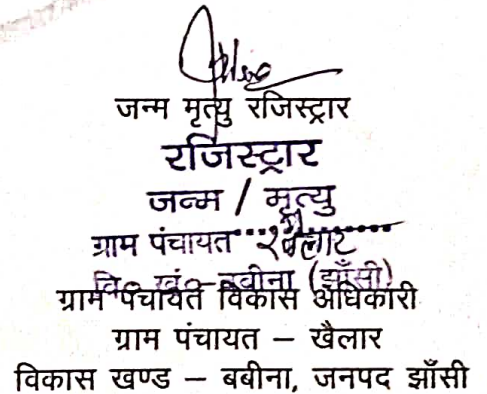 जन्म मृत्यु रजिस्ट्रार
रजिस्ट्रार
जन्म / मृत्यु
ग्राम पंचायत खैलार
वि० खं०-बबीना (झाँसी)
ग्राम पंचायत विकास अधिकारी
ग्राम पंचायत – खैलार
विकास खण्ड – बबीना, जनपद झाँसी